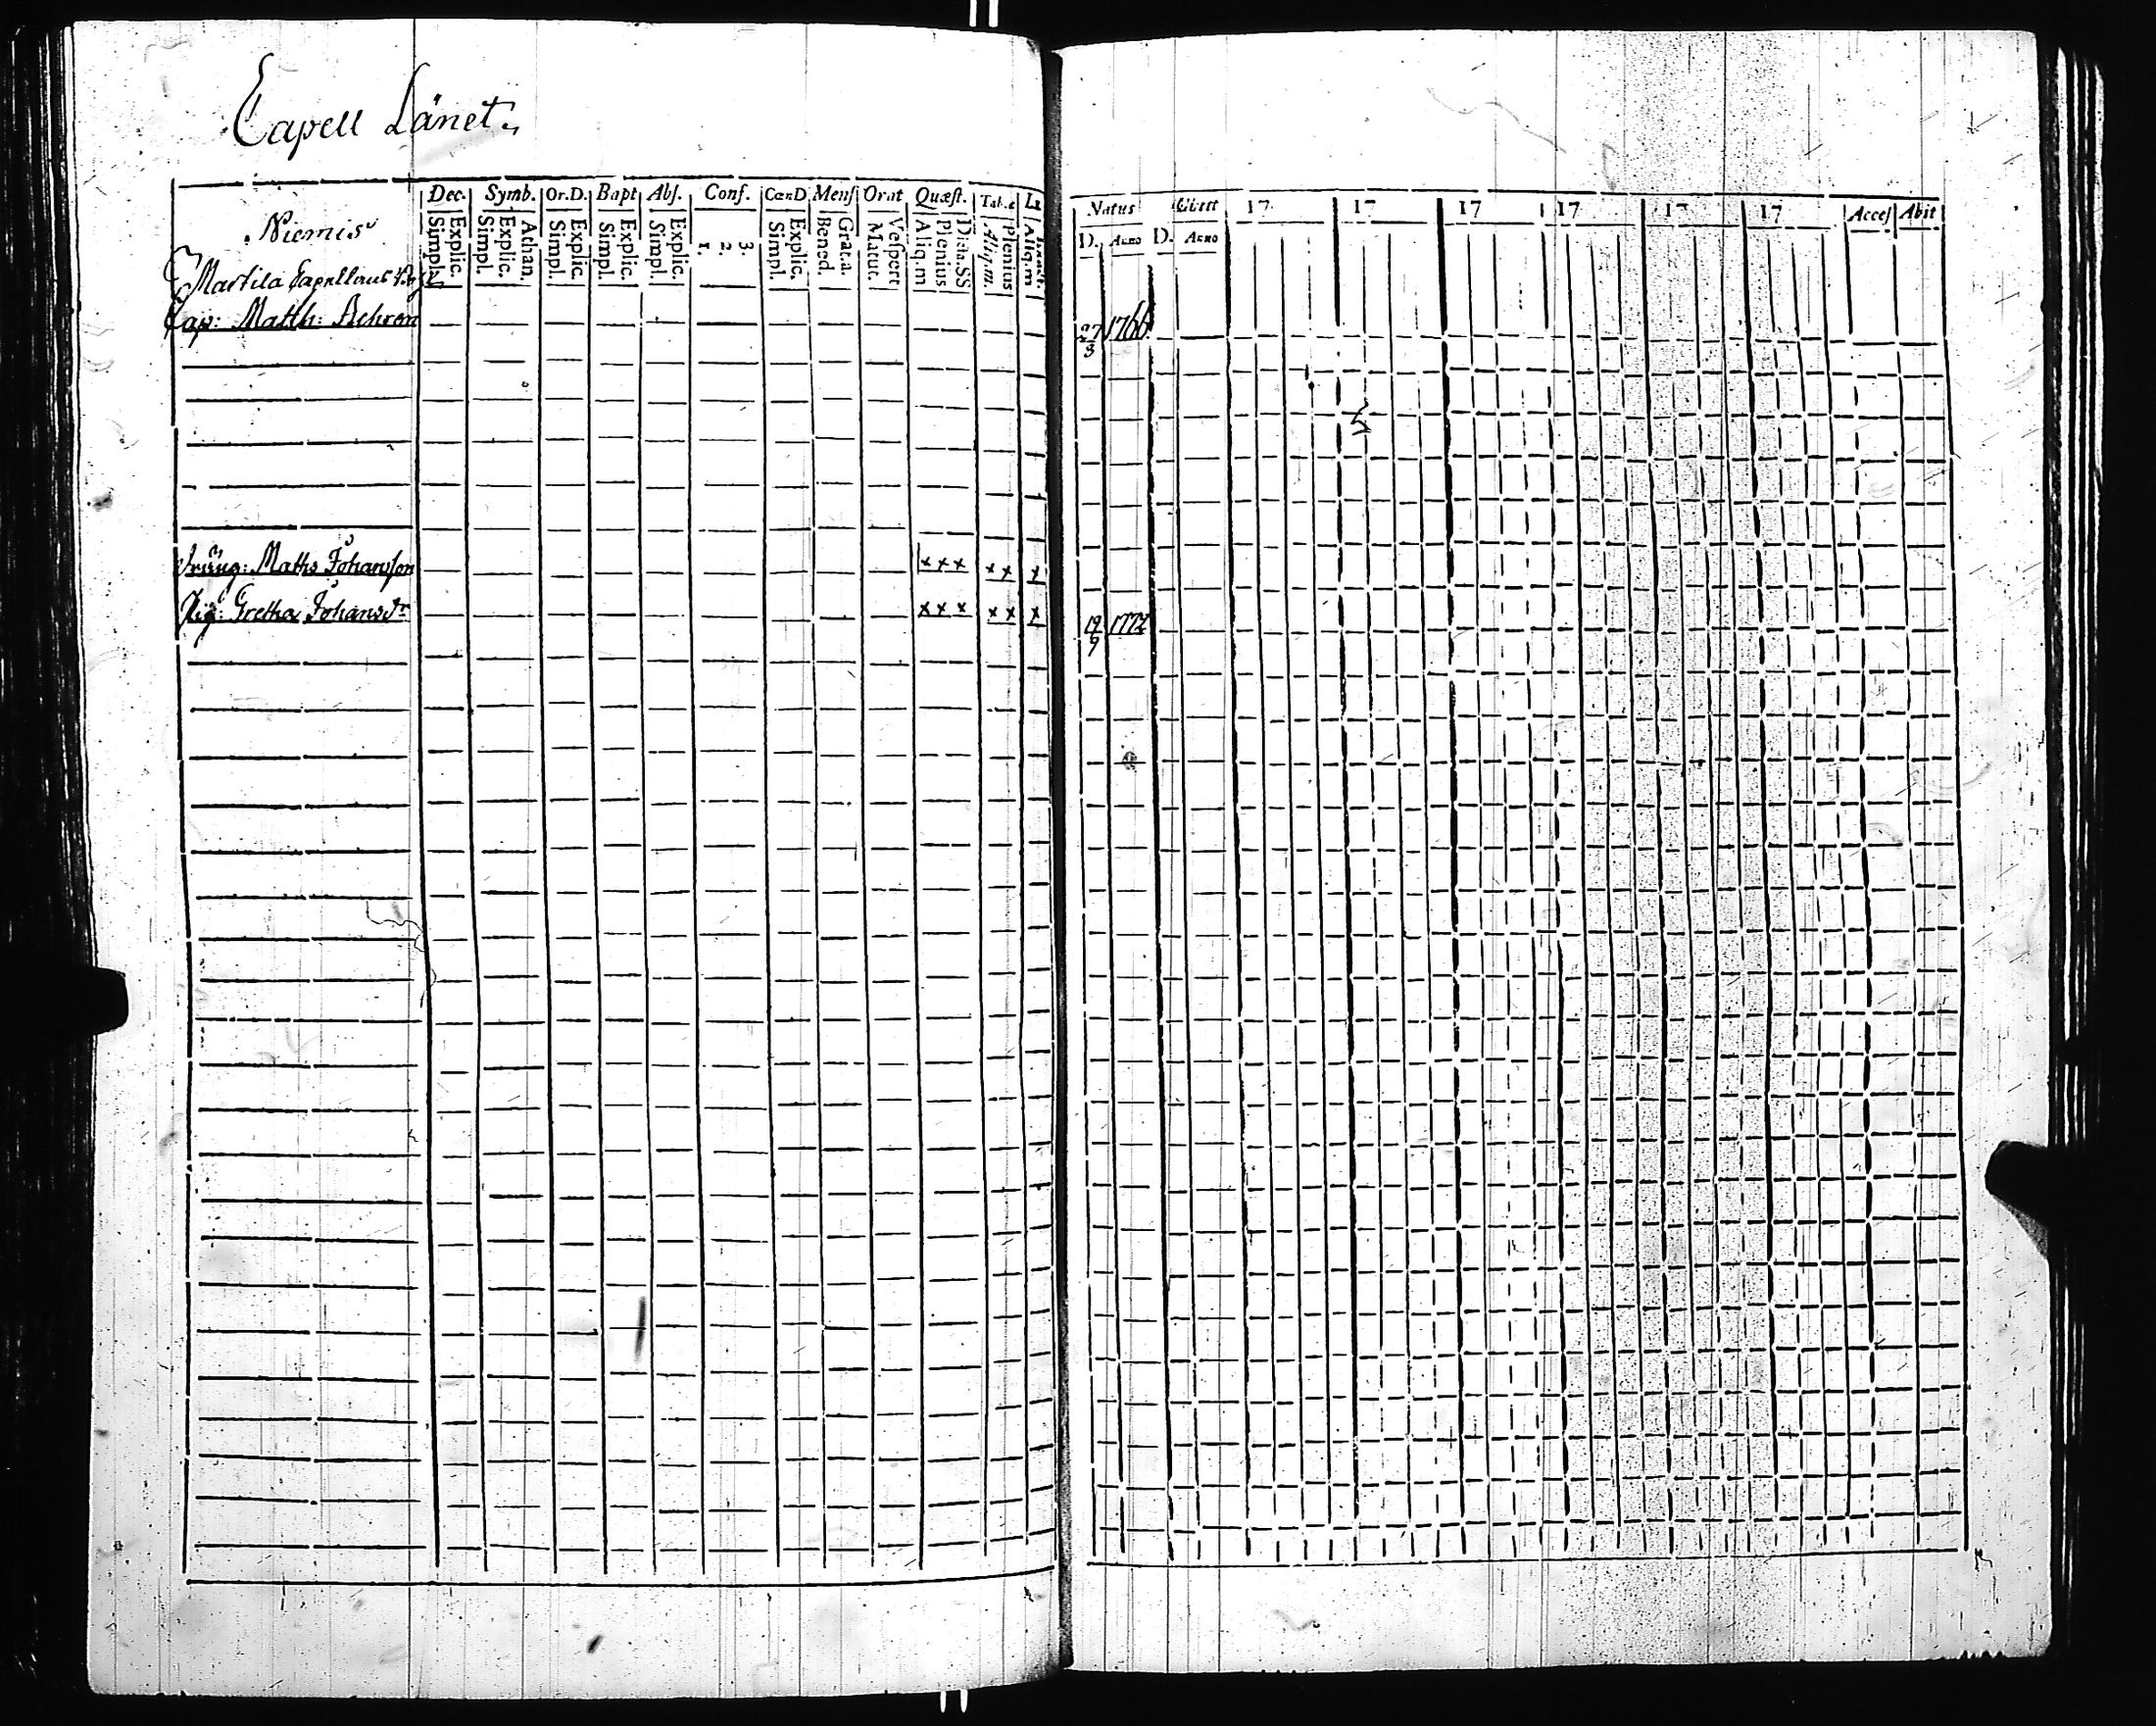 Capell Länet.
Dec. Symb. Or.D. Bapt Abs. Conf. CœnD Mens Orat Quæst. Tab.æ
Simpl. Explic. Simpl. Explic. Athan. Simpl. Explic. Simpl. Explic. Simpl. Explic. 1. 2. 3. Simpl. Explic. Bened. Grat.a. Matut. Vespert Aliq.m Plenius Dicta.SS Aliq.m. Plenius Aliq.m
Niemis
Martila Capellans
Cap: Matth: Rehren
Dräng: Maths Johansson x x x x x x
Pig: Gretha Johansdr x x x x x x
Natus Obiit 17 17 17 17 17 17 Acces Abit
D. Anno D. Anno
27/3 1766
19/7 1772